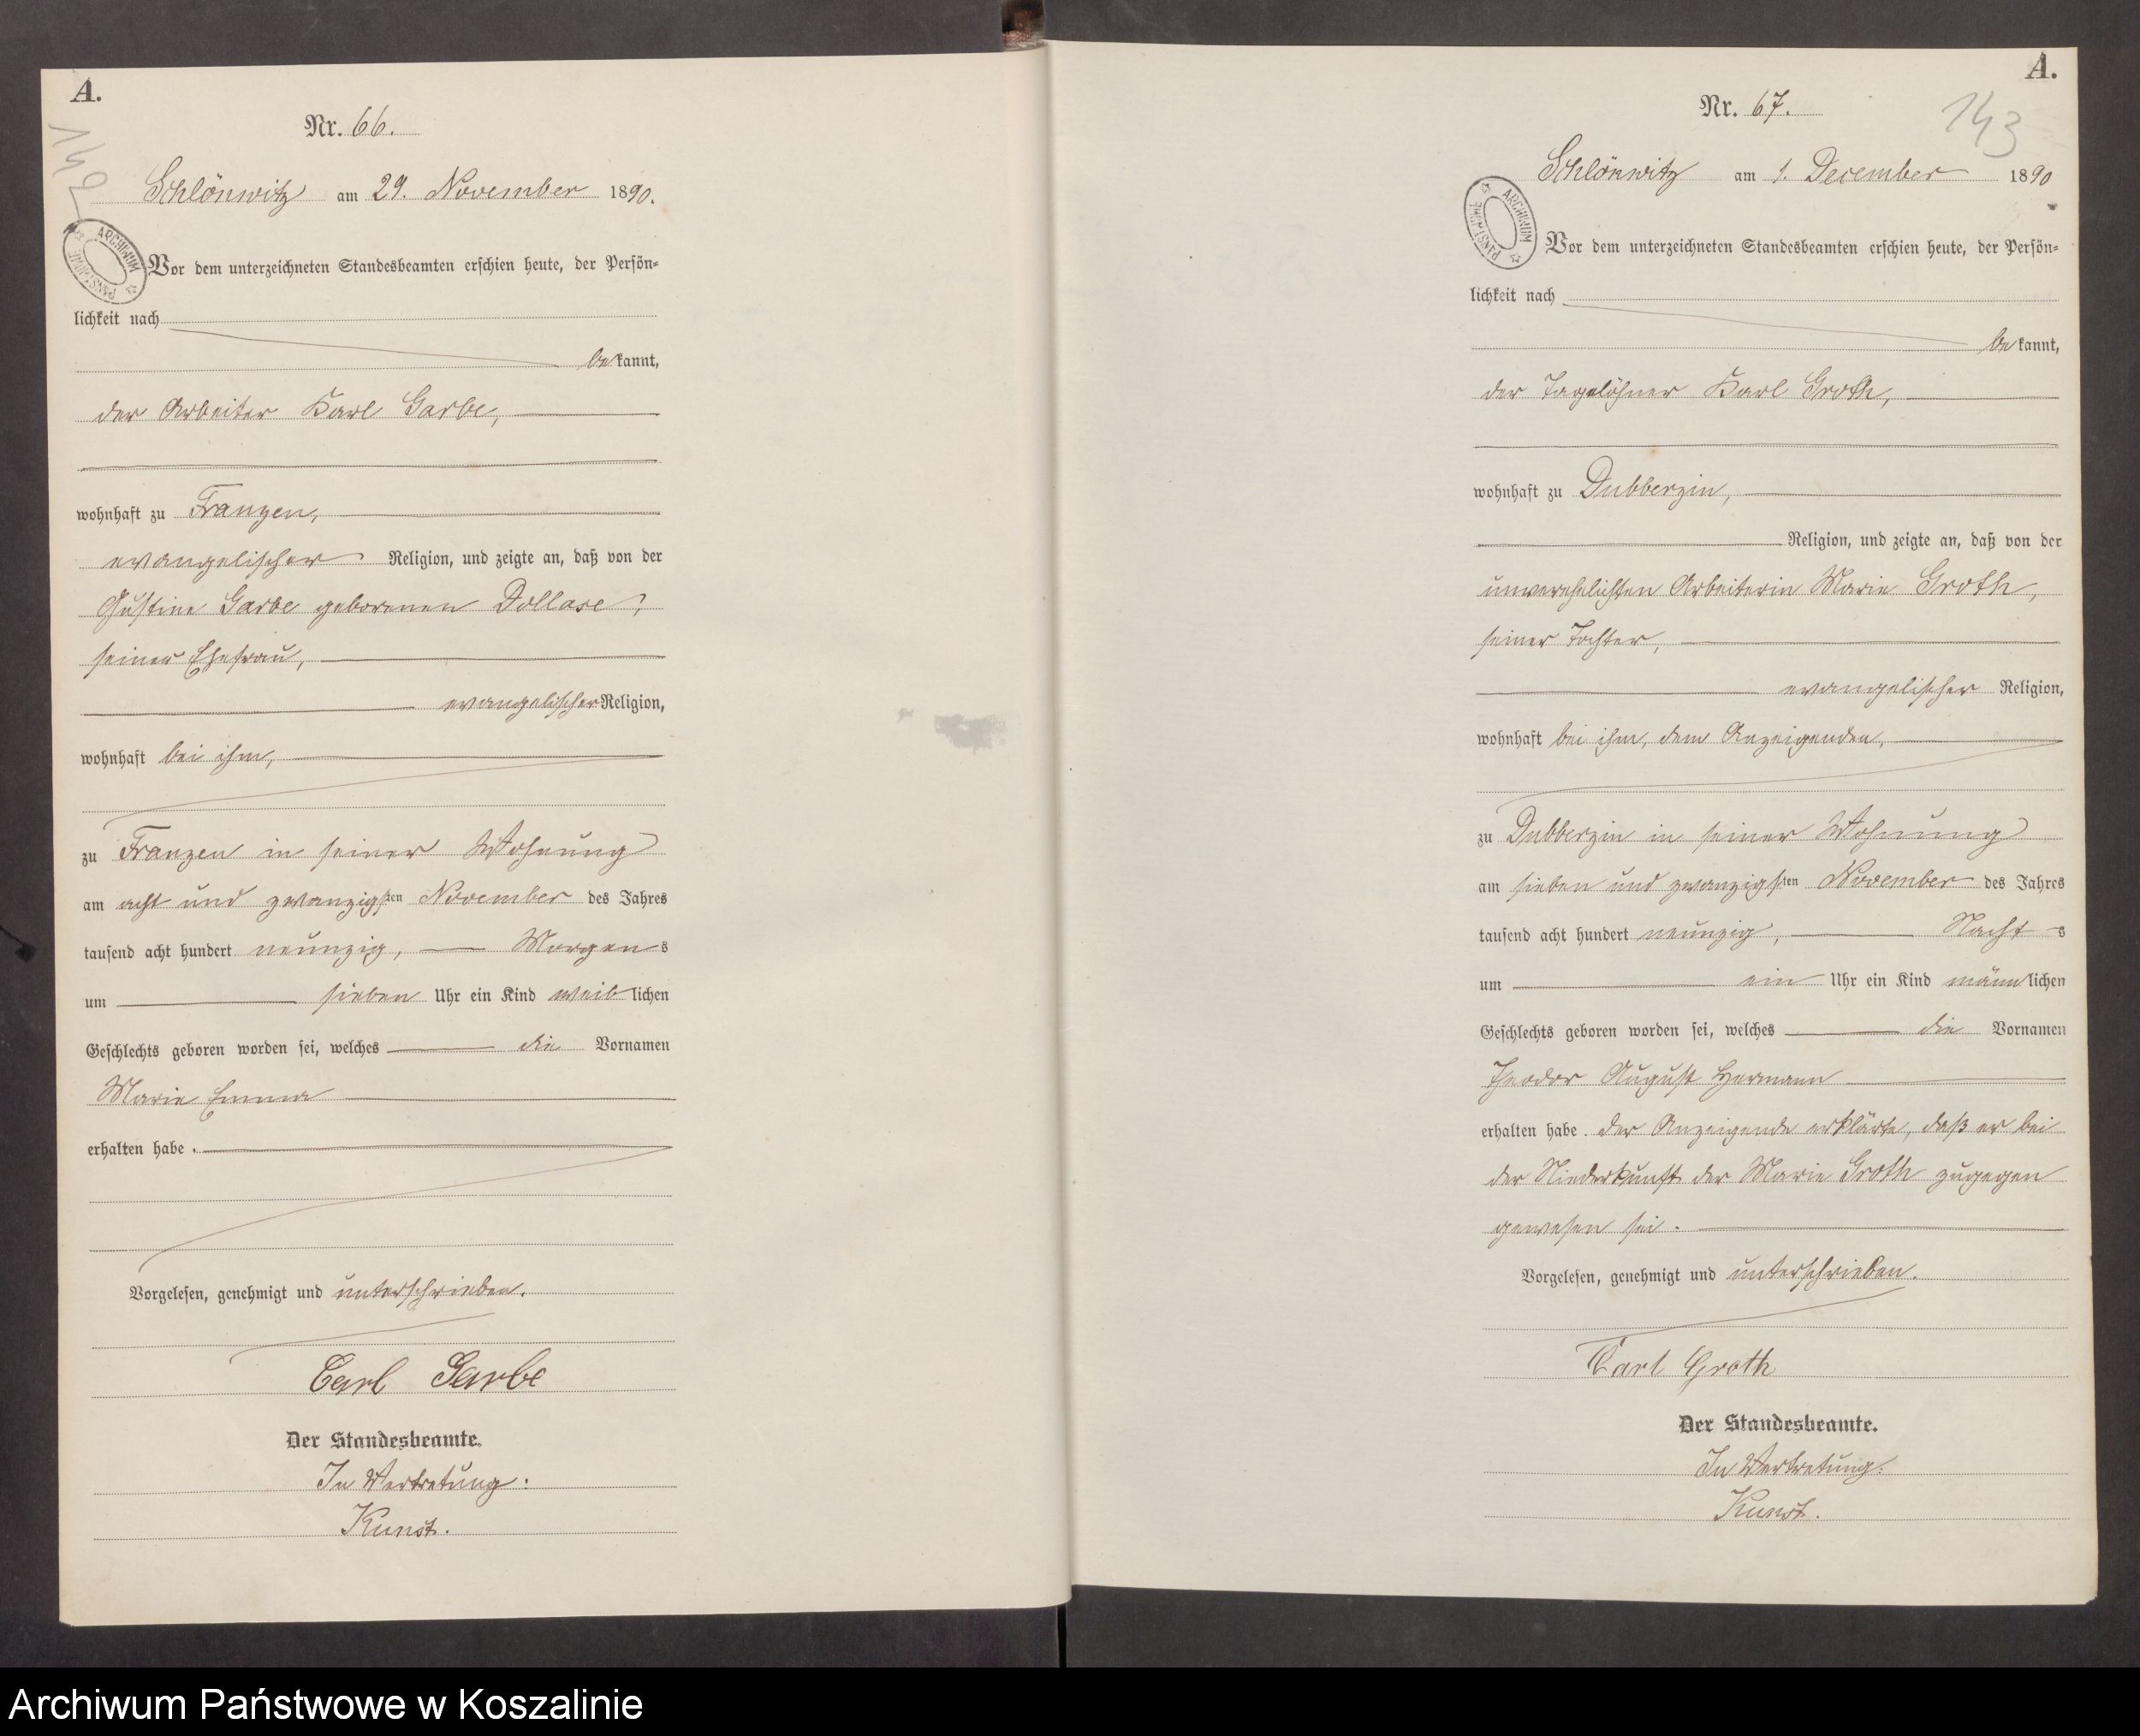 A.
142
Nr. 66.
Schlönwitz am 29. November 1890.
ARCHIWUM PAŃSTWOWE
Vor dem unterzeichneten Standesbeamten erschien heute, der Persön-
lichkeit nach
be kannt,
der Arbeiter Karl Garbe,
wohnhaft zu Franzen,
evangelischer Religion, und zeigte an, daß von der
Justine Garbe geborenen Dollase,
seiner Ehefrau,
evangelischer Religion,
wohnhaft bei ihm,
zu Franzen in seiner Wohnung
am acht und zwanzigsten November des Jahres
tausend acht hundert neunzig, Morgens
um sieben Uhr ein Kind weiblichen
Geschlechts geboren worden sei, welches die Vornamen
Marie Emma
erhalten habe.
Vorgelesen, genehmigt und unterschrieben.
Carl Garbe
Der Standesbeamte.
In Vertretung:
Kunst.
A.
143
Nr. 67.
Schlönwitz am 1. December 1890
ARCHIWUM PAŃSTWOWE
Vor dem unterzeichneten Standesbeamten erschien heute, der Persön-
lichkeit nach
be kannt,
der Tagelöhner Karl Groth,
wohnhaft zu Dubberzin,
Religion, und zeigte an, daß von der
unverehelichten Arbeiterin Marie Groth,
seiner Tochter,
evangelischer Religion,
wohnhaft bei ihm, dem Anzeigenden,
zu Dubberzin in seiner Wohnung
am sieben und zwanzigsten November des Jahres
tausend acht hundert neunzig, Nachts
um ein Uhr ein Kind männlichen
Geschlechts geboren worden sei, welches die Vornamen
Theodor August Hermann
erhalten habe. Der Anzeigende erklärte, daß er bei
der Niederkunft der Marie Groth zugegen
gewesen sei.
Vorgelesen, genehmigt und unterschrieben.
Carl Groth
Der Standesbeamte.
In Vertretung:
Kunst.
Archiwum Państwowe w Koszalinie